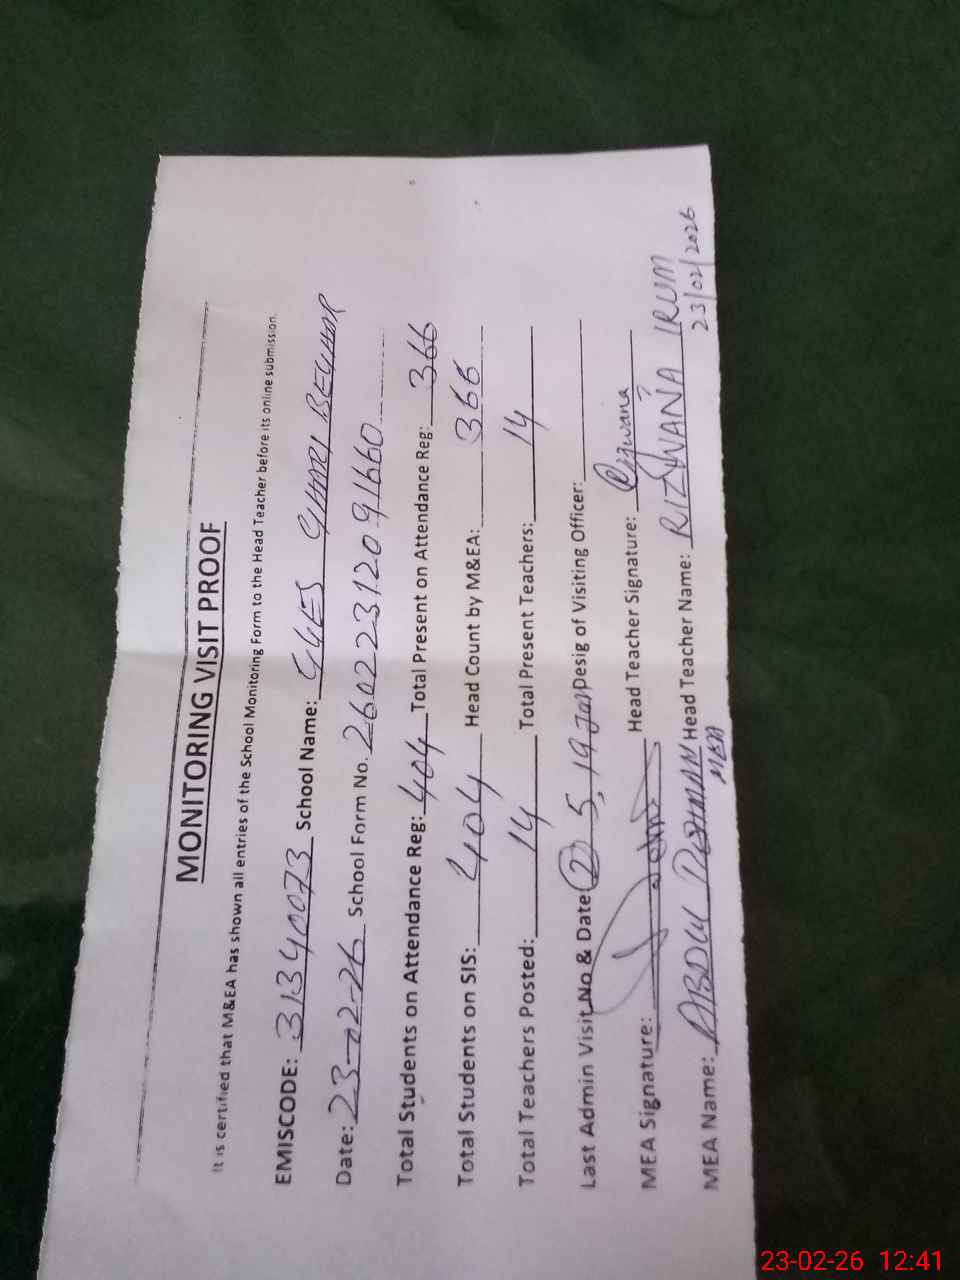 MONITORING VISIT PROOF
It is certified that M&EA has shown all entries of the School Monitoring Form to the Head Teacher before its online submission.
EMISCODE: 31340073 School Name: GGES GHARI BEGHAR
Date: 23-02-26 School Form No. 260223120991660
Total Students on Attendance Reg: 404 Total Present on Attendance Reg: 366
Total Students on SIS: 404 Head Count by M&EA: 366
Total Teachers Posted: 14 Total Present Teachers: 14
Last Admin Visit No & Date: 2 5, 19 Jan Desig of Visiting Officer:
MEA Signature: Head Teacher Signature: Rizwana
MEA Name: ABDUL REHMAN Head Teacher Name: RIZWANA IRUM
MEA
23/02/2026
23-02-26 12:41